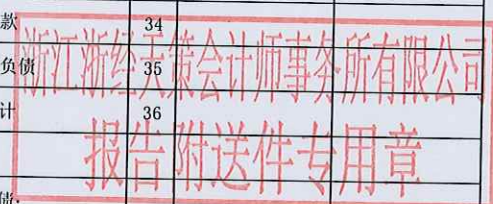 款 34
负债 35
计 36
债:
浙江浙经天策会计师事务所有限公司
报告附送件专用章